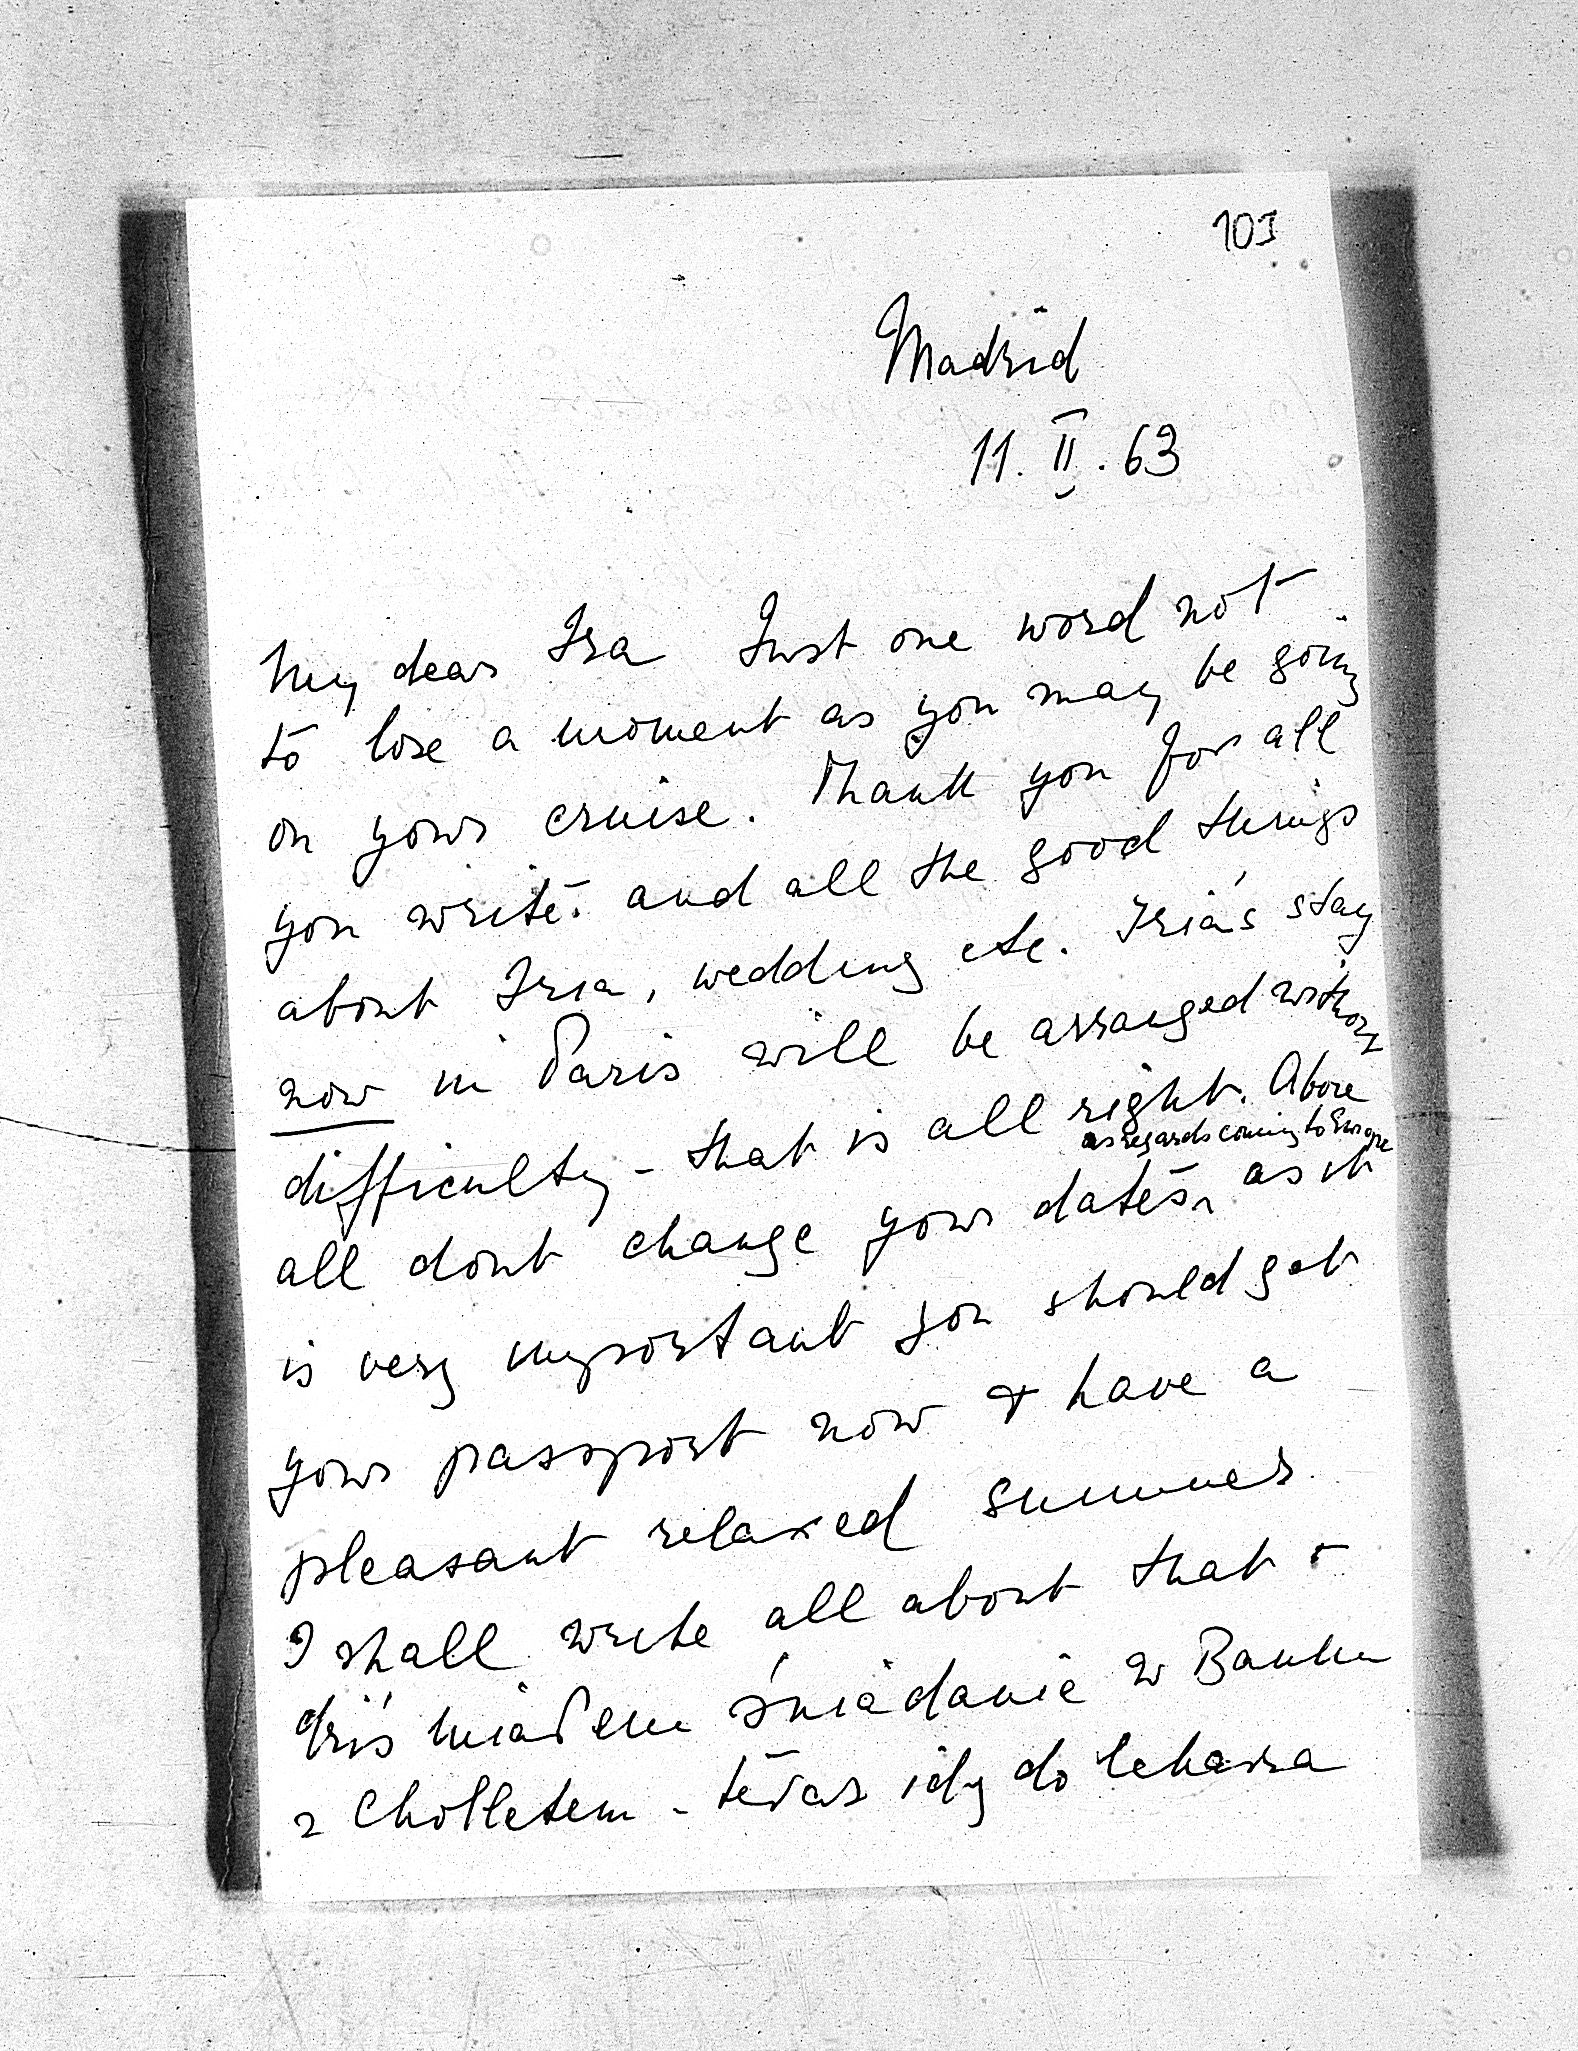 101
Madrid
11. II. 63
My dear Ira Just one word not
to lose a moment as you may be going
on your cruise. Thank you for all
you write. and all the good things
about Iria, wedding etc. Iria's stay
now in Paris will be arranged without
difficulty - that is all right. Above
as regards coming to Europe
all dont change your dates, as it
is very important you should get
your passport now & have a
pleasant relaxed summer
I shall write all about that -
dziś miałem śniadanie w Banku
z Cholletem - teraz idę do lekarza